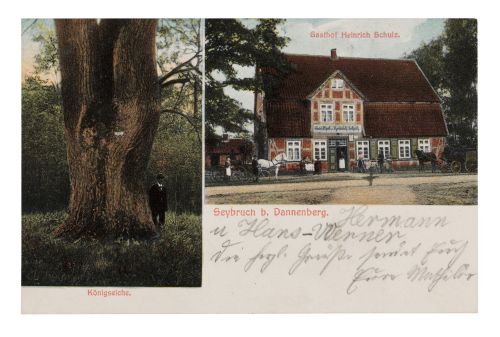 Gasthof Heinrich Schulz.
Seybruch b. Dannenberg.
Königseiche.
Hermann
u Hans-Werner
die hrzl. Grüße sendet Euch
Eure Mathilde